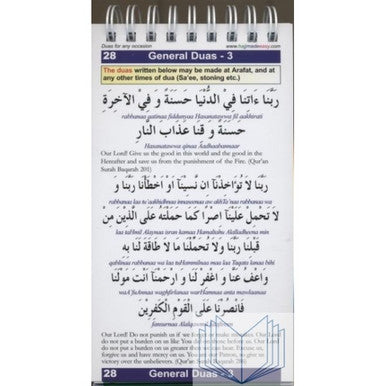 Duas for any occasion www.hajjmadeeasy.com
28 General Duas - 3
The duas written below may be made at Arafat, and at
any other times of dua (Sa'ee, stoning etc.)
رَبَّنَا ءَاتِنَا فِي الدُّنْيَا حَسَنَةً وَ فِي الْآخِرَةِ
rabbanaa aatinaa fiddunyaa Hasanatawwa fil aakhirati
حَسَنَةً وَ قِنَا عَذَابَ النَّارِ
Hasanatawwa qinaa Aadhaabannaar
Our Lord! Give us the good in this world and the good in the
Hereafter and save us from the punishment of the Fire. (Qur'an
Surah Baqarah 201)
رَبَّنَا لَا تُؤَاخِذْنَا اِنْ نَّسِيْنَا اَوْ اَخْطَأْنَا رَبَّنَا وَ
rabbanaa laa tu'aakhidhnaa innaseenaa aw akhTa'naa rabbanaa wa
لَا تَحْمِلْ عَلَيْنَا اِصْرًا كَمَا حَمَلْتَهُ عَلَى الَّذِيْنَ مِنْ
laa taHmil Alaynaa isran kamaa Hamaltahu Alalladheena min
قَبْلِنَا رَبَّنَا وَلَا تُحَمِّلْنَا مَا لَا طَاقَةَ لَنَا بِهِ
qablinaa rabbanaa wa laa tuHammilnaa maa laa Taaqata lanaa bihi
وَاعْفُ عَنَّا وَ اغْفِرْ لَنَا وَ ارْحَمْنَا اَنْتَ مَوْلَنَا
waA'fuAnnaa waghfirlanaa warHamnaa anta mawlaanaa
فَانْصُرْنَا عَلَى الْقَوْمِ الْكٰفِرِيْنَ
fansurnaa Alalqawmil kaafireen
Our Lord! Do not punish us if we forget or make mistakes. Our Lord!
do not put a burden on us like You did on those before us. Our Lord!
do not put a burden on us greater than we can bear. Excuse us,
forgive us and have mercy on us. You are our Patron, so give us
victory over the unbelievers. (Qur'an Surah
28 General Duas - 3